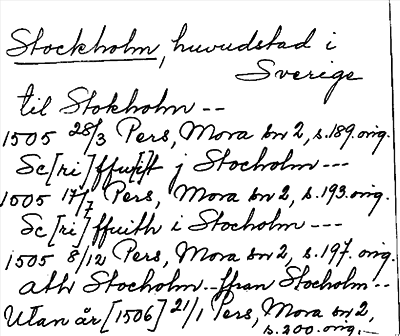 Stockholm, huvudstad i
Sverige
til Stokholm --
1505 28/3 Pers, Mora bn 2, s.189. orig.
Sc[ri]ffuit j Stocholm ---
1505 17/7 Pers, Mora bn 2, s.193. orig.
Sc[ri]ffuith i Stocholm ---
1505 8/12 Pers, Mora bn 2, s.197. orig.
ath Stocholm -- ffran Stocholm --
Utan år [1506] 21/1 Pers, Mora bn 2,
s.200. orig. --